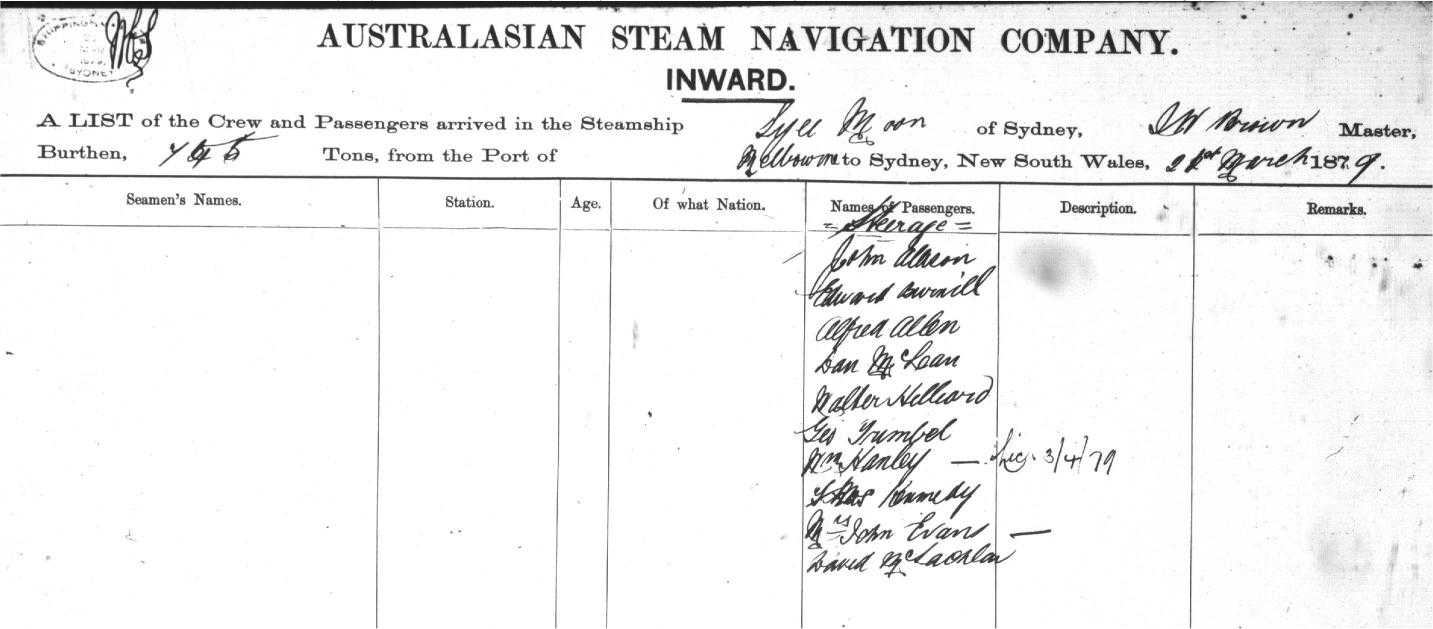 SHIPPING
SYDNEY
AUSTRALASIAN STEAM NAVIGATION COMPANY.
INWARD.
A LIST of the Crew and Passengers arrived in the Steamship Syee Moon of Sydney, Brown Master,
Burthen, Tons, from the Port of Melbourne to Sydney, New South Wales, March 1879.
Seamen's Names. Station. Age. Of what Nation. Names of Passengers. Description. Remarks.
= Steerage =
John
Edward
Alfred Allen
Dan McLean
Walter Hilliard
Geo Trumbel
Wm Hanley — 3/4/79
Thos Kennedy
Mrs John Evans —
David McLachlan